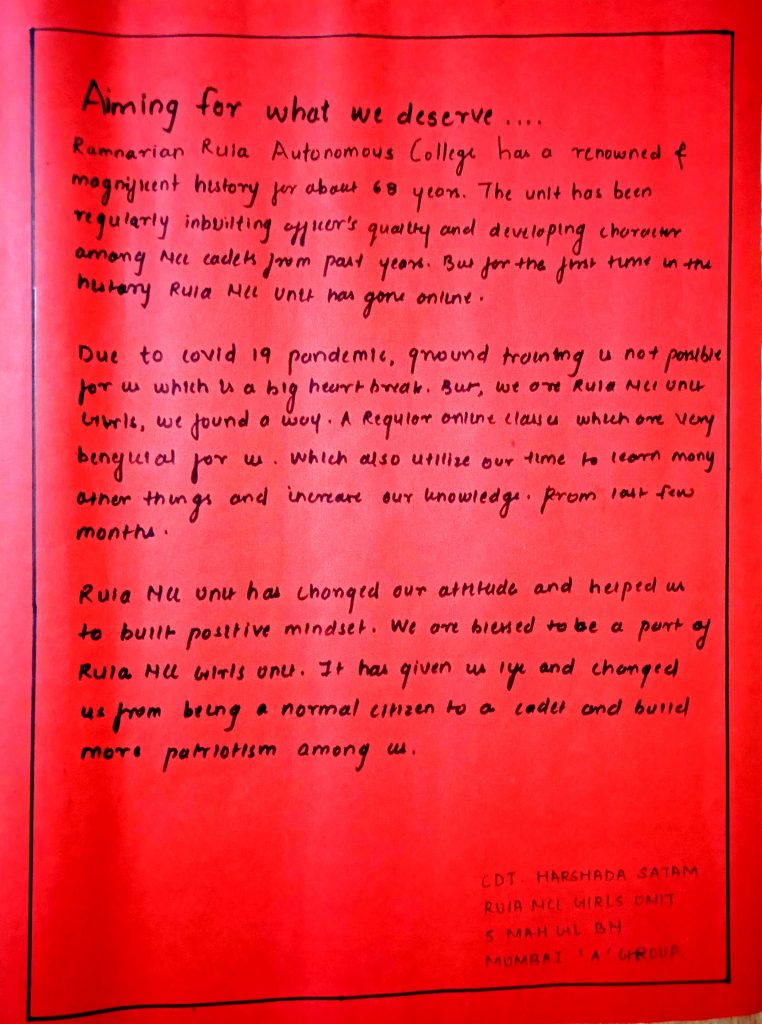 Aiming for what we deserve ....
Ramnarian Ruia Autonomous College has a renowned &
magnificent history for about 68 years. The unit has been
regularly inbuilting officer's quality and developing character
among NCC cadets from past years. But for the first time in the
history Ruia NCC Unit has gone online.
Due to covid 19 pandemic, ground training is not possible
for us which is a big heart break. But, we are Ruia NCC Unit
Girls, we found a way. A Regular online classes which are very
beneficial for us. which also utilize our time to learn many
other things and increase our knowledge. from last few
months.
Ruia NCC unit has changed our attitude and helped us
to built positive mindset. We are blessed to be a part of
Ruia NCC Girls Unit. It has given us life and changed
us from being a normal citizen to a cadet and build
more patriotism among us.
CDT. HARSHADA SATAM
RUIA NCC GIRLS UNIT
5 MAH GIL BN
MUMBAI 'A' GROUP